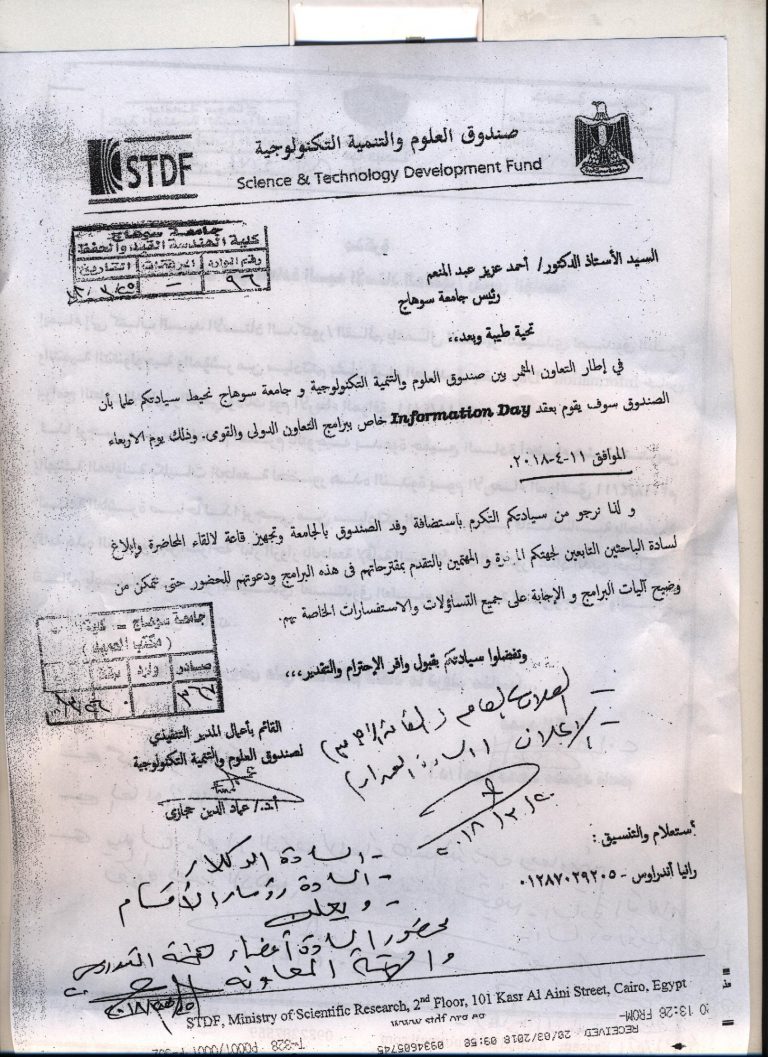 صندوق العلوم والتنمية التكنولوجية
STDF
Science & Technology Development Fund
جامعة سوهاج
كلية الهندسة
رقم الوارد المرفقات التاريخ
٩٦ -
السيد الأستاذ الدكتور/ أحمد عزيز عبد المنعم
رئيس جامعة سوهاج
تحية طيبة وبعد،،
في إطار التعاون المثمر بين صندوق العلوم والتنمية التكنولوجية و جامعة سوهاج نحيط سيادتكم علما بأن
الصندوق سوف يقوم بعقد Information Day خاص ببرامج التعاون الدولى والقومى. وذلك يوم الاربعاء
الموافق ١١-٤-٢٠١٨.
و لذا نرجو من سيادتكم التكرم بأستضافة وفد الصندوق بالجامعة وتجهيز قاعة لالقاء المحاضرة وإبلاغ
لسادة الباحثين التابعين لجهتكم و المهتمين بالتقدم بمقترحاتهم فى هذه البرامج ودعوتهم للحضور حتى نتمكن من
وضيح آليات البرامج و الإجابة على جميع التساؤلات والاستفسارات الخاصة بهم.
وتفضلوا سيادتكم بقبول وافر الإحترام والتقدير،،،
جامعة سوهاج - كلية
( مكتب العميد )
صادر وارد
٣٦٧
القائم بأعمال المدير التنفيذي
لصندوق العلوم والتنمية التكنولوجية
أ.د./ عماد الدين حجازى
أستعلام والتنسيق :
رانيا أندراوس - ٠١٢٨٧٠٢٩٢٠٥
- السادة الوكلاء
- السادة رؤساء الأقسام
- ويعلن
بحضور السادة أعضاء هيئة التدريس
والهيئة المعاونة
STDF, Ministry of Scientific Research, 2nd Floor, 101 Kasr Al Aini Street, Cairo, Egypt
www.stdf.org.eg
13:28 FROM-
RECEIVED 20/03/2018 09:58 0934605745
T-328 P0001/0001 F-302